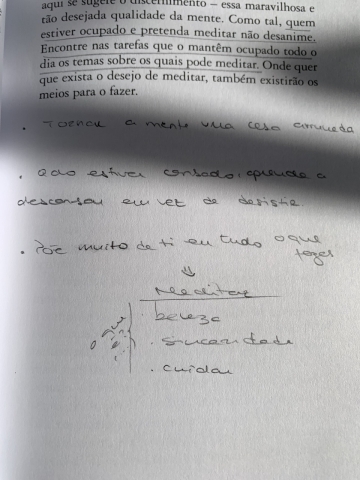 aqui se sugere o discernimento – essa maravilhosa e
tão desejada qualidade da mente. Como tal, quem
estiver ocupado e pretenda meditar não desanime.
Encontre nas tarefas que o mantêm ocupado todo o
dia os temas sobre os quais pode meditar. Onde quer
que exista o desejo de meditar, também existirão os
meios para o fazer.
. Tornar a mente uma casa arrumada
. Qdo estiver cansado, aprende a
descansar em vez de desistir
. Põe muito de ti em tudo o que
fazes
Meditar
. beleza
. sinceridade
. cuidar